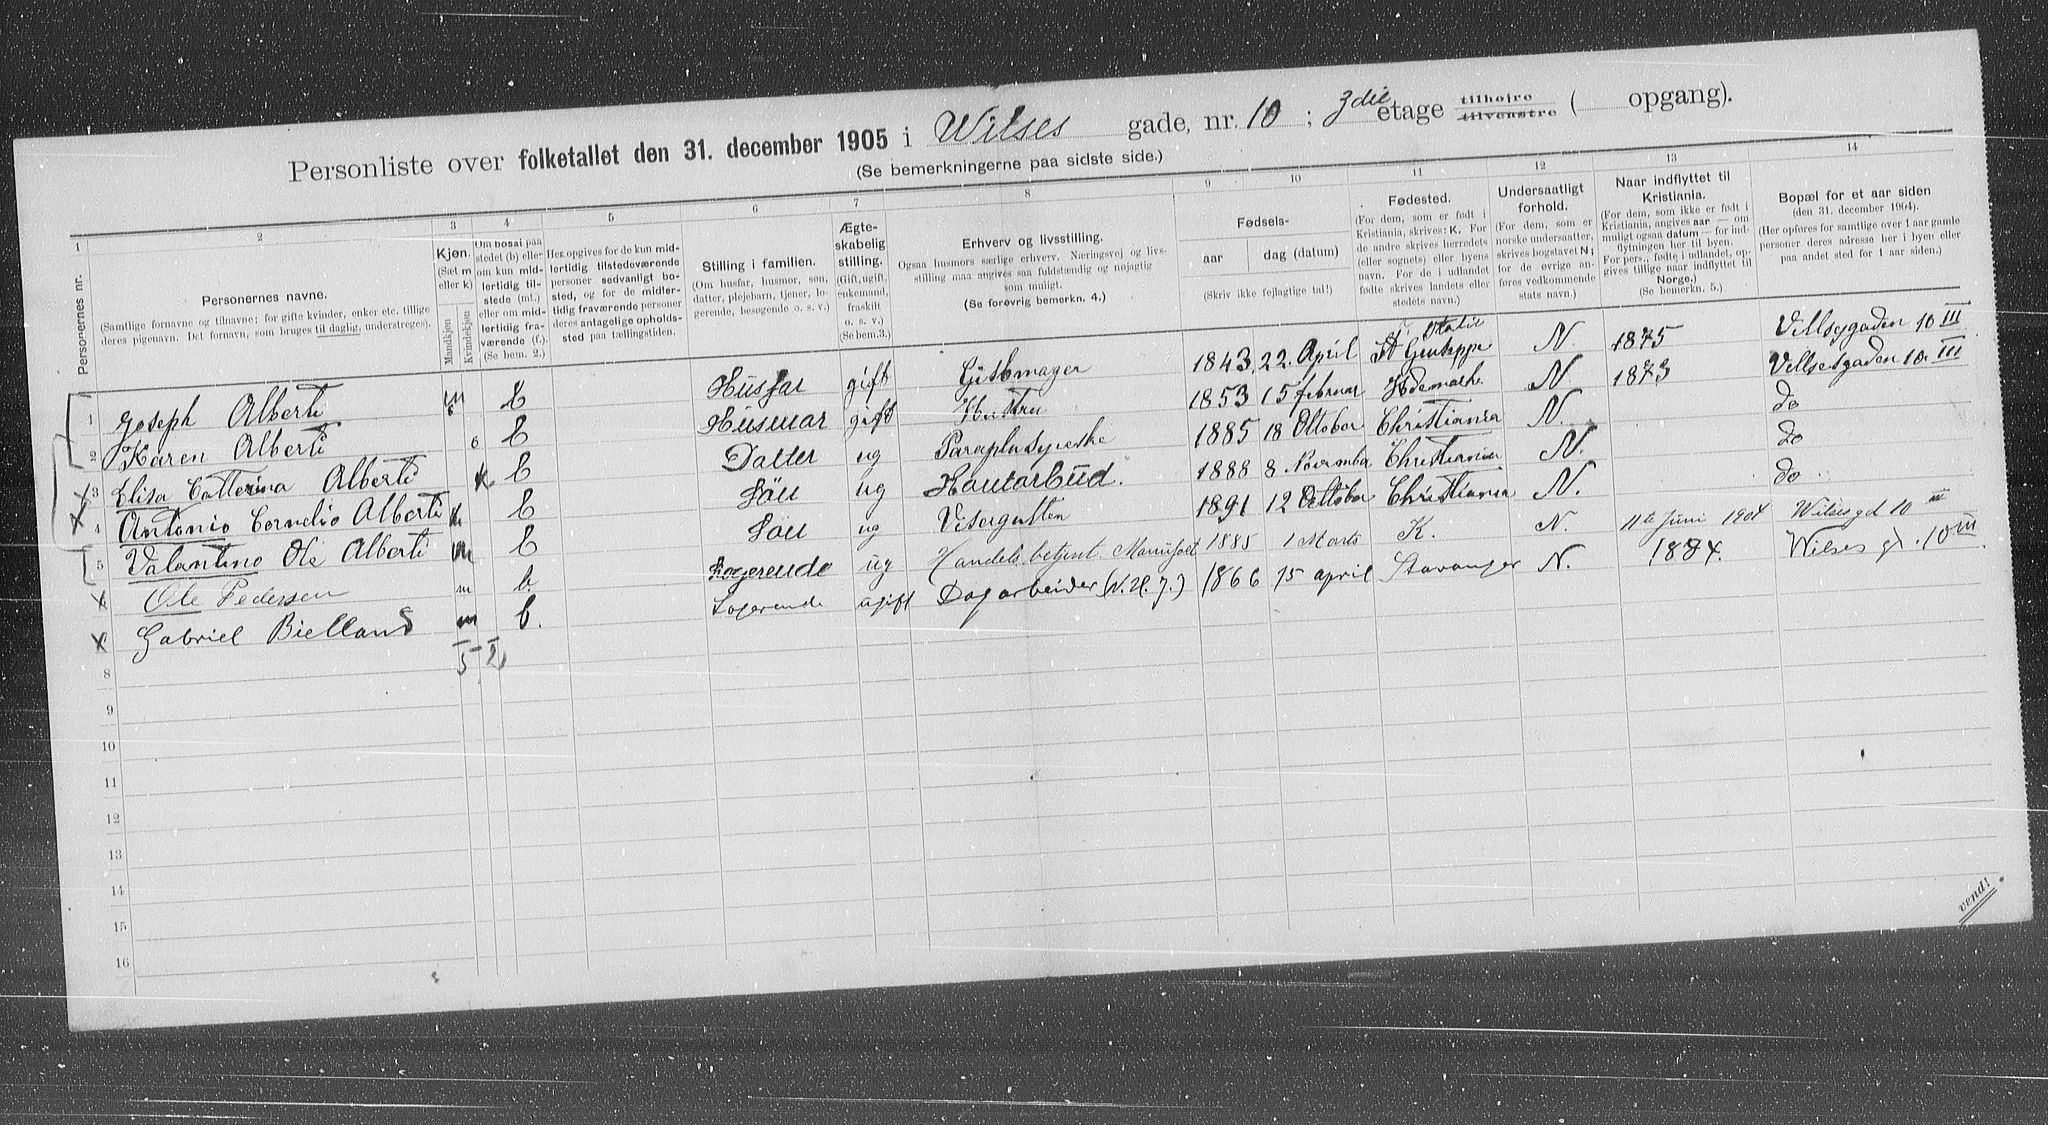 Personliste over folketallet den 31. december 1905 i Wilses gade, nr. 10 ; 3die etage tilhøjre tilvenstre ( opgang).
(Se bemerkningerne paa sidste side.)
1 2 3 4 5 6 7 8 9 10 11 12 13 14
Personernes nr.
Personernes navne.
(Samtlige fornavne og tilnavne; for gifte kvinder, enker etc. tillige
deres pigenavn. Det fornavn, som bruges til daglig, understreges).
Kjøn.
(Sæt m
eller k)
Mandkjøn
Kvindekjøn
Om bosat paa
stedet (b) eller
om kun mid-
lertidig til-
stede (mt.)
eller om mid-
lertidig fra-
værende (f.).
(Se bem. 2.)
Her opgives for de kun mid-
lertidig tilstedeværende
personer sedvanligt bo-
sted, og for de midler-
tidig fraværende personer
deres antagelige opholds-
sted paa tællingstiden.
Stilling i familien.
(Om husfar, husmor, søn,
datter, plejebarn, tjener, lo-
gerende, besøgende o. s. v.)
Ægte-
skabelig
stilling.
(Gift, ugift,
enkemand,
fraskilt
o. s. v.)
(Se bem.3.)
Erhverv og livsstilling.
Ogsaa husmors særlige erhverv. Næringsvej og livs-
stilling maa angives saa fuldstændig og nøjagtig
som muligt.
(Se forøvrig bemerkn. 4.)
Fødsels-
aar
dag (datum)
(Skriv ikke fejlagtige tal!)
Fødested.
(For dem, som er født i
Kristiania, skrives: K. For
de andre skrives herredets
(eller sognets) eller byens
navn. For de i udlandet
fødte skrives landets eller
stedets navn.)
Undersaatligt
forhold.
(For dem, som er
norske undersaatter,
skrives bogstavet N;
for de øvrige an-
føres vedkommende
stats navn.)
Naar indflyttet til
Kristiania.
(For dem, som ikke er født i
Kristiania, angives aar — om
muligt ogsaa datum — for ind-
flytningen her til byen.
For pers., fødte i udlandet, op-
gives tillige naar indflyttet til
Norge.)
(Se bemerkn. 5.)
Bopæl for et aar siden
(den 31. december 1904).
(Her opføres for samtlige over 1 aar gamle
personer deres adresse her i byen eller
paa andet sted for 1 aar siden.)
1 Joseph Alberti m b Husfar gift Gibsmager 1843 22. April Italie St Geuseppe N. 1875 Vilsesgaden 10 III
2 Karen Alberti b Husmor gift Hustru 1853 15 februar Hedemarke N 1873 Vilsesgaden 10 III
3 Elisa Catterina Alberti k b Datter ug Paraplysyerske 1885 18 Oktober Christiania N. do
4 Antonio Cornelio Alberti m b Sön ug Kontorbud. 1888 8 November Christiania N. do
5 Valantino Ole Alberti m b Sön ug Visergutten 1891 12 Oktober Christiania N. do
Ole Pedersen m b. Logerende ug Handelsbetjent Manufact 1885 1 Marts K. N. 11te Juni 1904 Wilsesgd 10 III
Gabriel Bielland m b. Logerende ugift Dagarbeider (N. H. J.) 1866 15 april Stavanger N. 1884. Wilses gd. 10 III
5 2
8
9
10
11
12
13
14
15
16
vend!